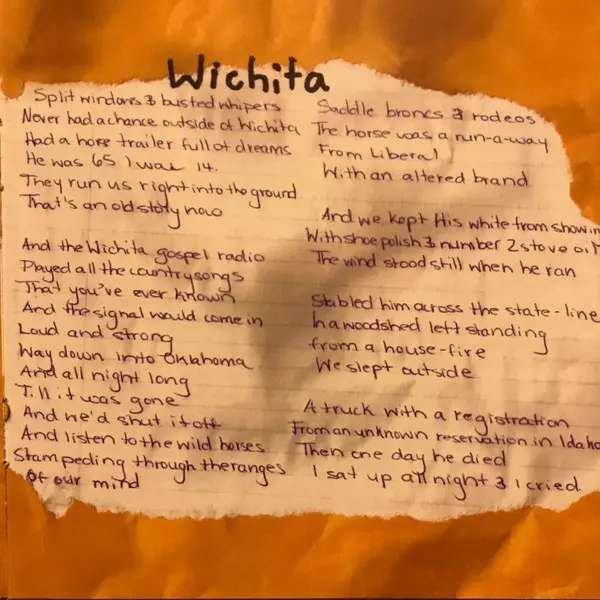 Wichita
Split windows & busted whipers
Never had a chance outside of Wichita
Had a horse trailer full of dreams
He was 65 I was 14.
They run us right into the ground
That's an old story now
And the Wichita gospel radio
Played all the country songs
That you've ever known
And the signal would come in
Loud and strong
Way down into Oklahoma
And all night long
Till it was gone
And we'd shut it off
And listen to the wild horses
Stampeding through the ranges
of our mind
Saddle broncs & rodeos
The horse was a run-a-way
From Liberal
With an altered brand
And we kept His white from showin
With shoe polish & number 2 stove oil
The wind stood still when he ran
Stabled him across the state-line
In a woodshed left standing
from a house-fire
We slept outside
A truck with a registration
From an unknown reservation in Idaho
Then one day he died
I sat up all night & I cried